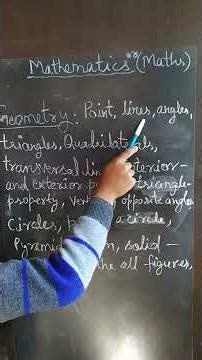 Mathematics (Maths)
Geometry: Point, lines, angles,
triangles, Quadrilaterals,
transversal line, interior-
and exterior triangle-
property, opposite angles
Circles, a circle,
Pyramid solid-
the all figures,